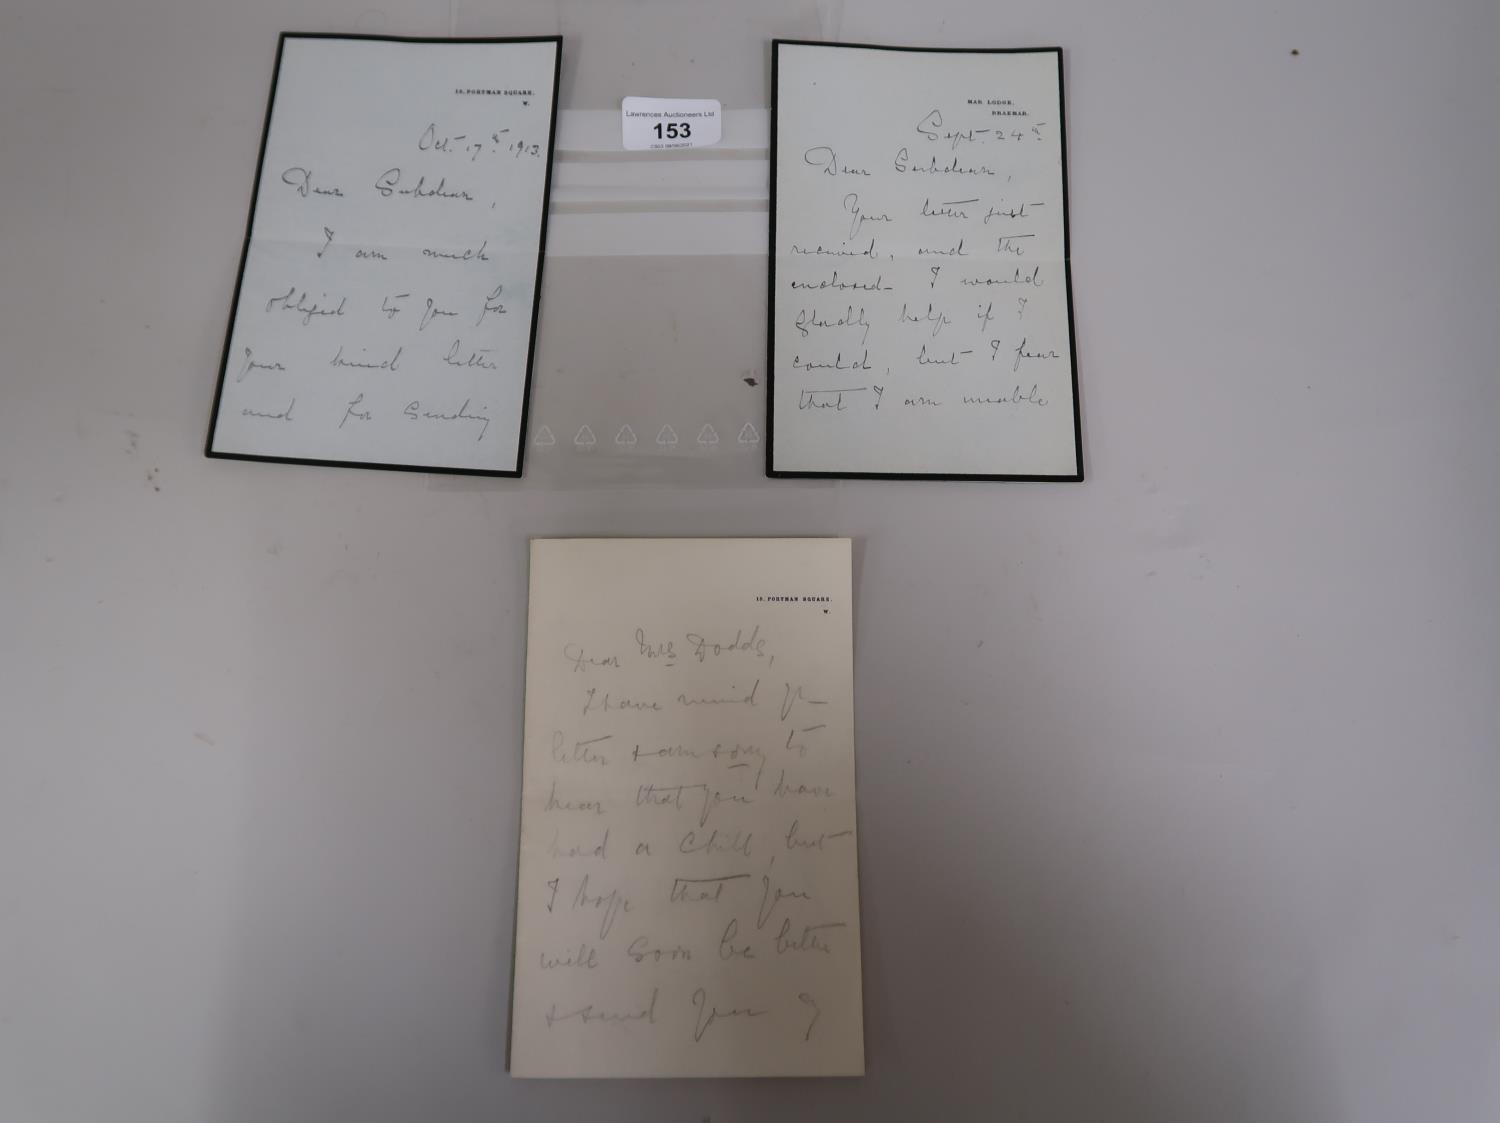 15, PORTMAN SQUARE.
W.
Oct. 17th 1913.
Dear Subdean,
I am much
obliged to you for
your kind letter
and for sending
Lawrences Auctioneers Ltd
153
MAR LODGE,
BRAEMAR.
Sept. 24th
Dear Subdean,
Your letter just
received, and the
enclosed - I would
gladly help if I
could, but I fear
that I am unable
15, PORTMAN SQUARE.
W.
Dear Mrs Dodds,
I have received yr
letter & am sorry to
hear that you have
had a chill, but
I hope that you
will soon be better
& send you